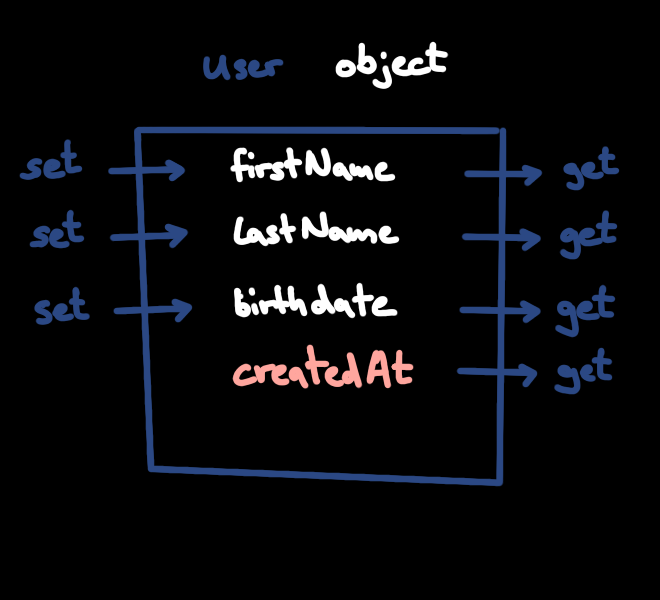 User object
set firstName get
set lastName get
set birthdate get
createdAt get